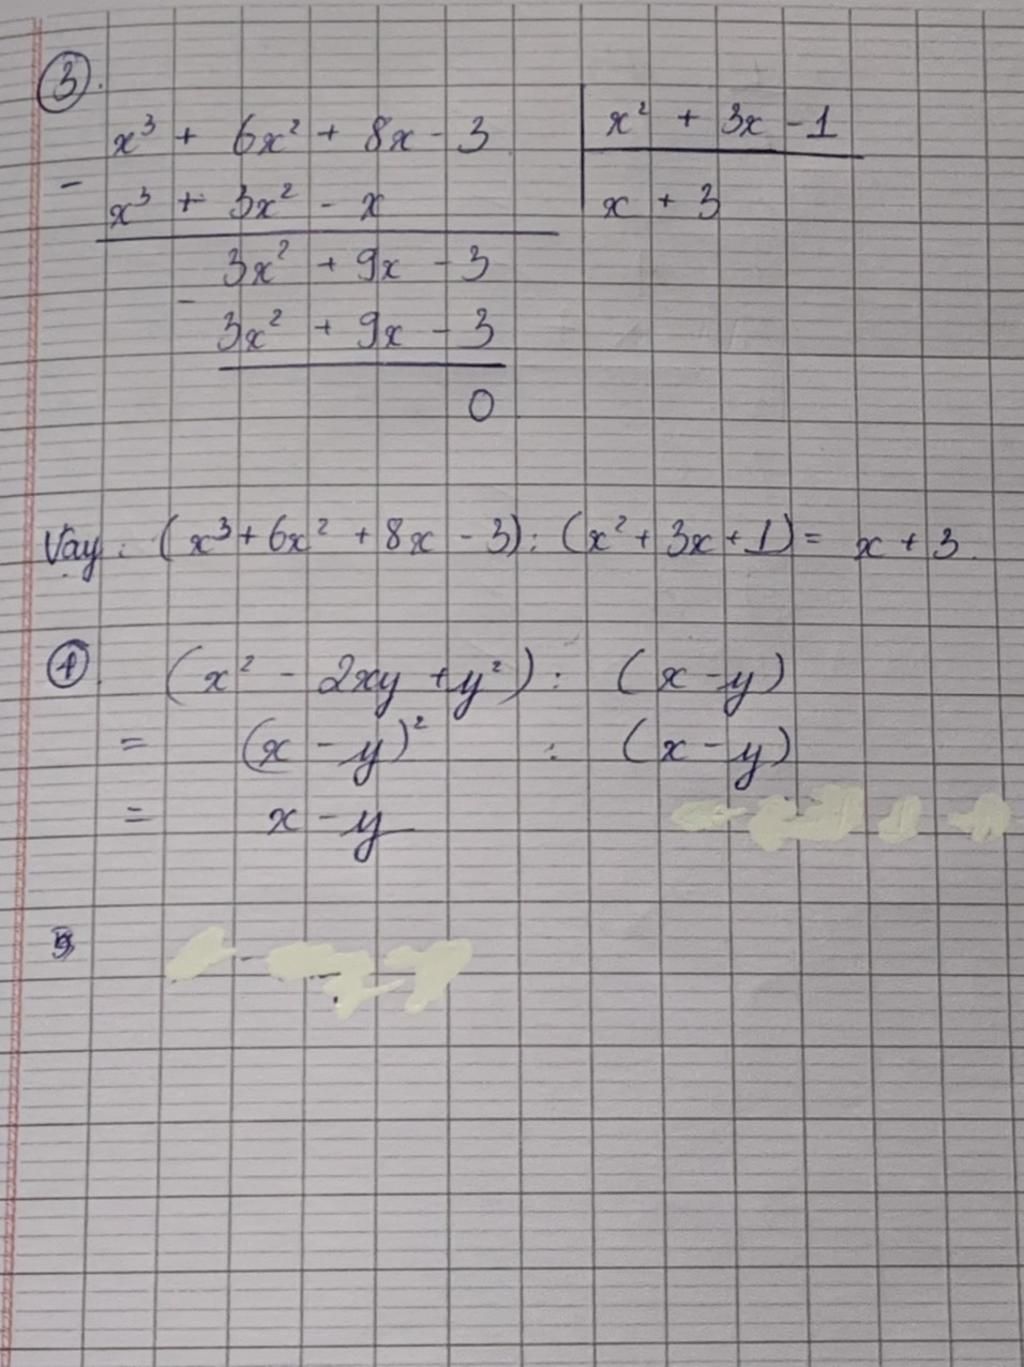 ③.
x³ + 6x² + 8x - 3 | x² + 3x - 1
- x³ + 3x² - x | x + 3
3x² + 9x - 3
- 3x² + 9x - 3
0
Vậy : (x³ + 6x² + 8x - 3) : (x² + 3x + 1) = x + 3.
④ (x² - 2xy + y²) : (x - y)
= (x - y)² : (x - y)
= x - y